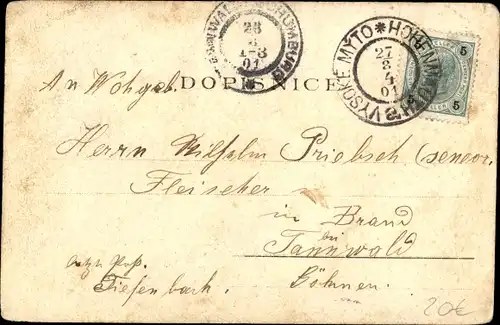 DOPISNICE
HOHENMAUTH * VYSOKÉ MÝTO
27
8
4
01
28
8
1-8
01
5
5
An Wohgeb.
Herrn Wilhelm Priebsch (senior.
Fleischer
in Brand
bei
Tannwald
Böhmen.
Post.
Tiefenbach.
20€